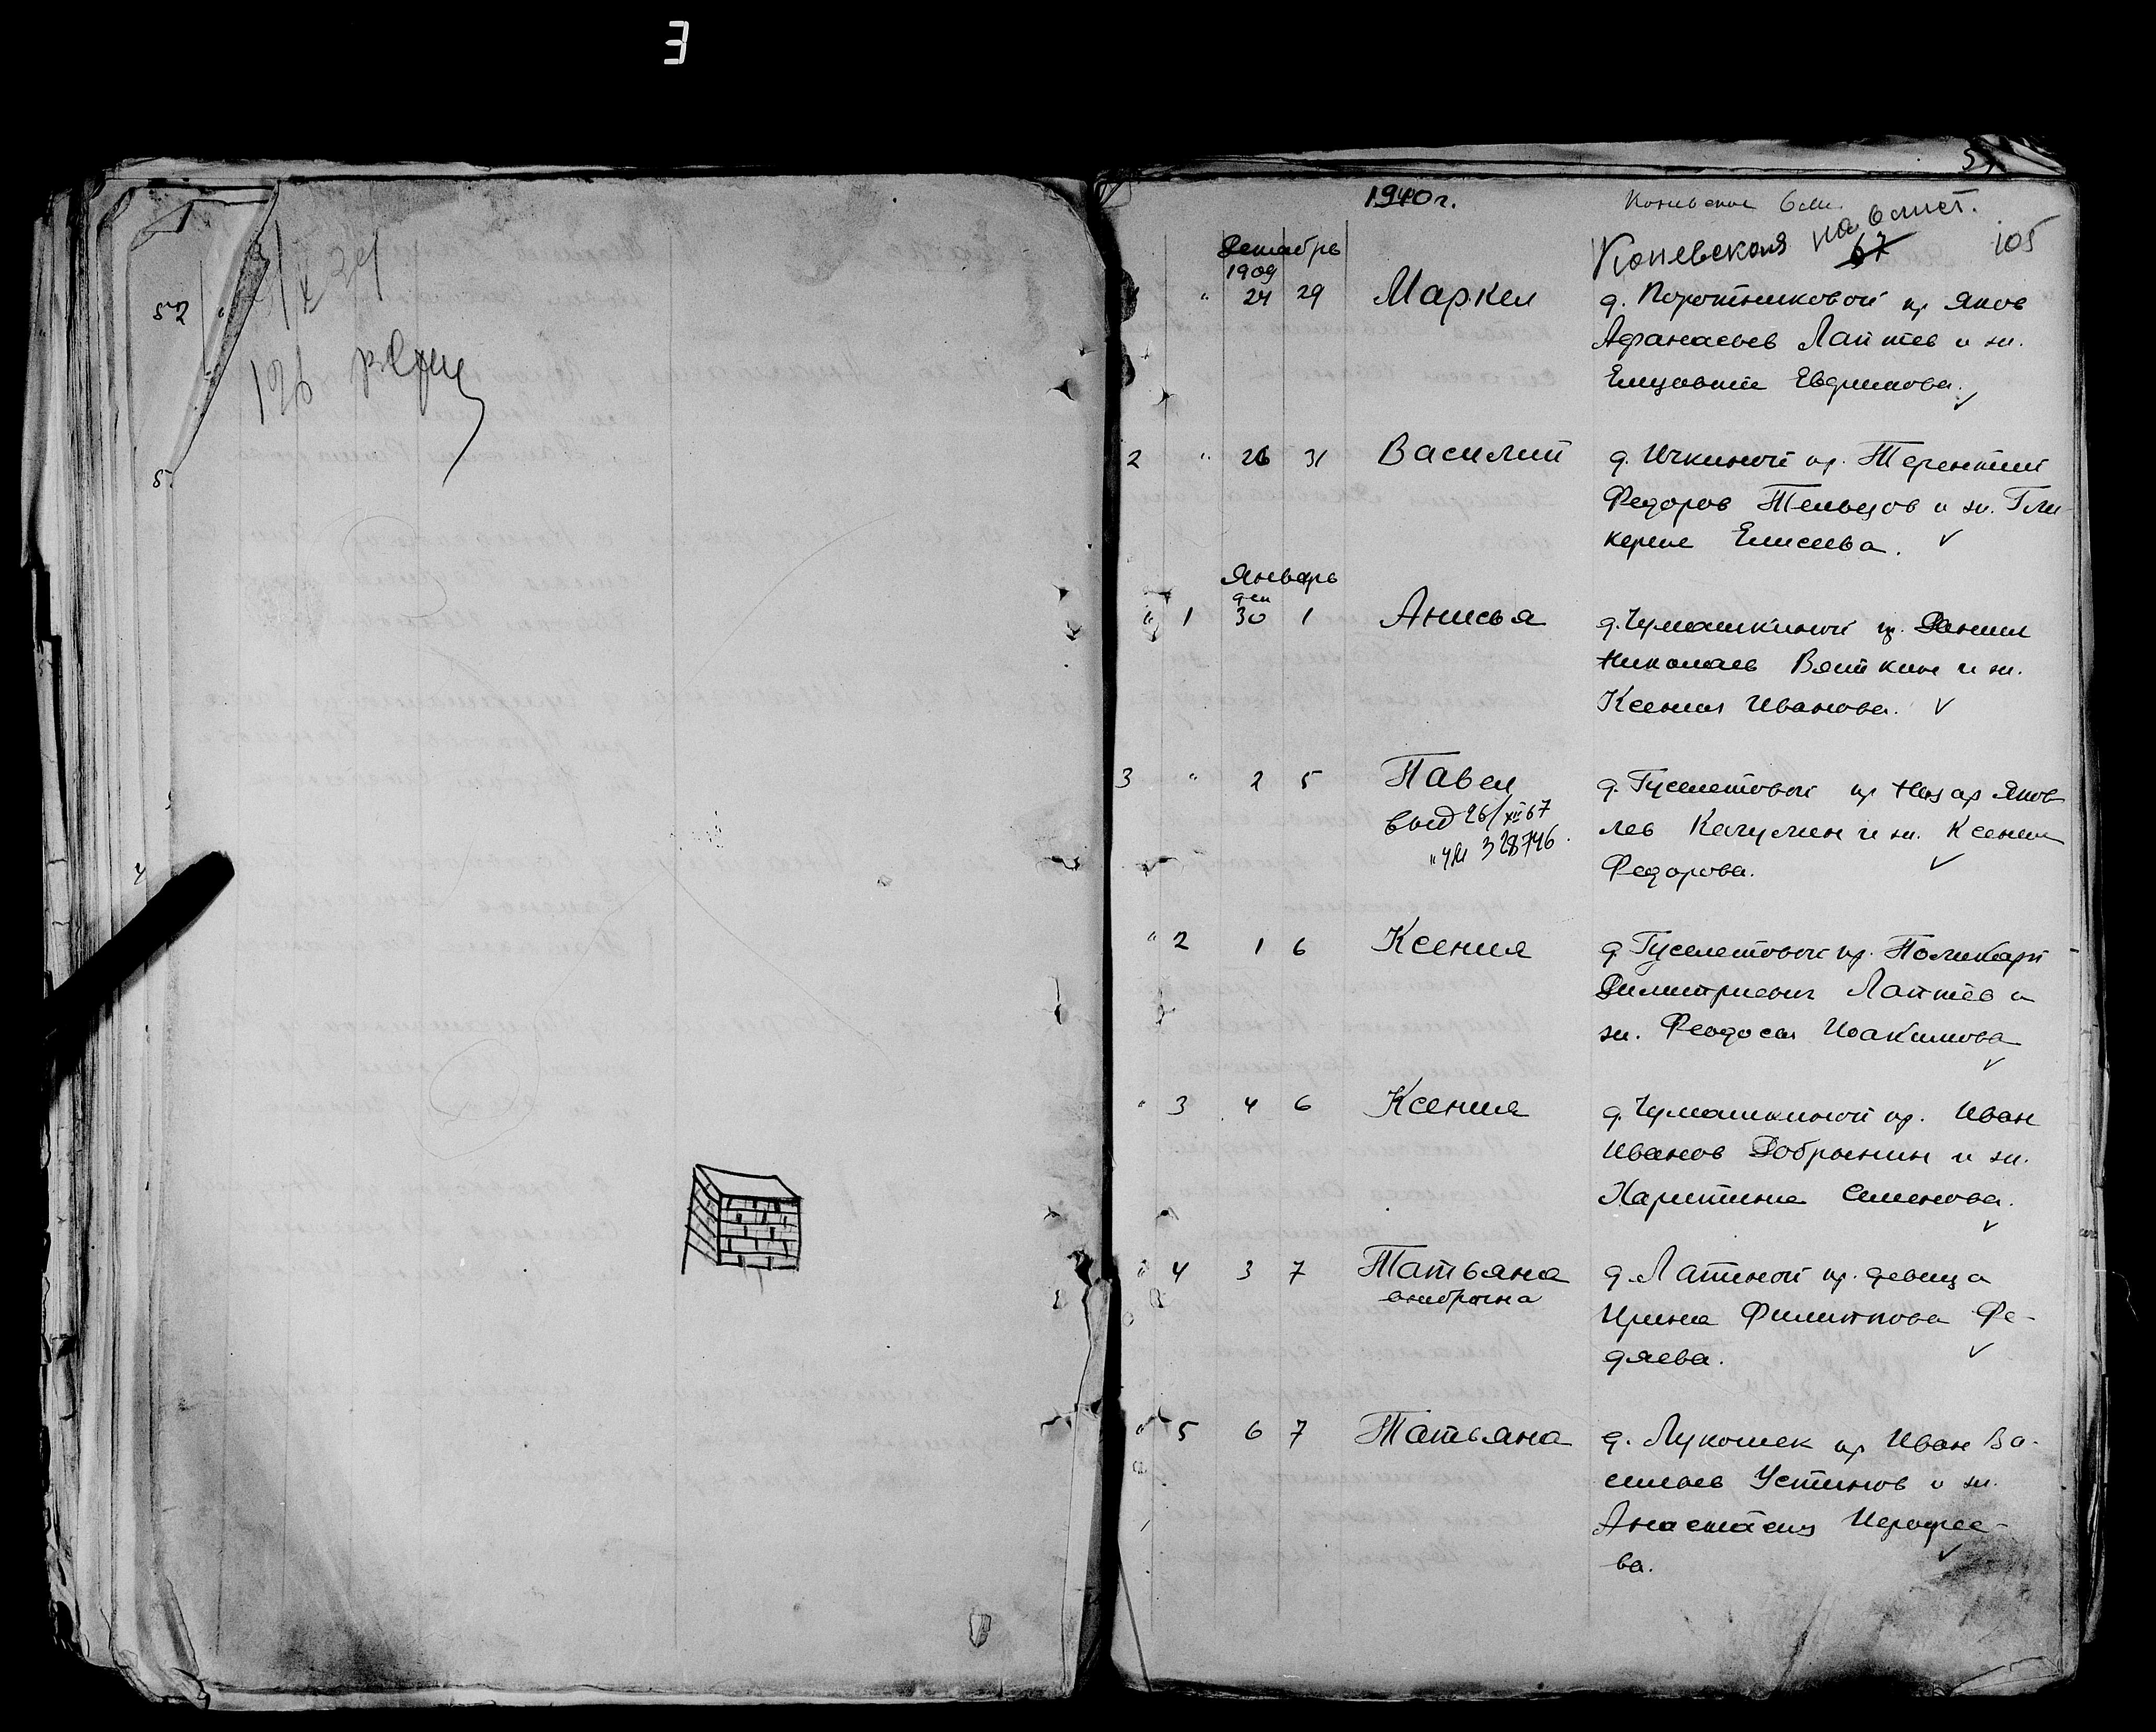 3
52
126
8
1910 г.
Коневская
67
105
Декабрь
1909
" 24 29 Маркел д. Коротниковой кр Яков
Афанасьев Лаптев и ж.
Елизавета Евфимова.
2 " 26 31 Василий д. Ичкиной кр. Терентий
Федоров Тельцов и ж. Гли-
керия Елисеева.
Январь
дек
" 1 30 1 Анисья д. Чумашкиной кр. Даниил
Николаев Вяткин и ж.
Ксения Иванова.
3 " 2 5 Павел д. Гуселетовой кр Назар Яков
лев Качулин и ж. Ксения
Федорова.
выд 26/XII 67
328746
" 2 1 6 Ксения д. Гуселетовой кр. Поликарп
Димитриевич Лаптев и
ж. Феодосия Иоакимова
" 3 4 6 Ксения д. Чумашкиной кр. Иван
Иванов Добрынин и ж.
Харитина Семенова.
" 4 3 7 Татьяна д. Лапиной кр. девица
внебрачна
Ирина Филиппова Фе-
дяева.
" 5 6 7 Татьяна д. Лукошек кр Иван Ва-
сильев Устинов и ж.
Анастасия Иерофее-
ва.